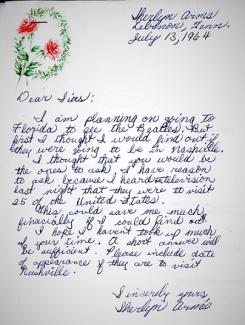 Sherlyn Arms
Lebanon, Tenn.
July 13, 1964
Dear Sirs:
I am planning on going to
Florida to see the Beatles. But
first I thought I would find out if
they were going to be in Nashville.
I thought that you would be
the ones to ask. I have reason
to ask because I heard television
last night that they were to visit
25 of the United States.
This could save me much
finacially if I could find out.
I hope I havent took up much
of your time. A short answer will
be sufficient. Please include date
of appearance if they are to visit
Nashville.
Sinserly yours
Sherlyn Arms